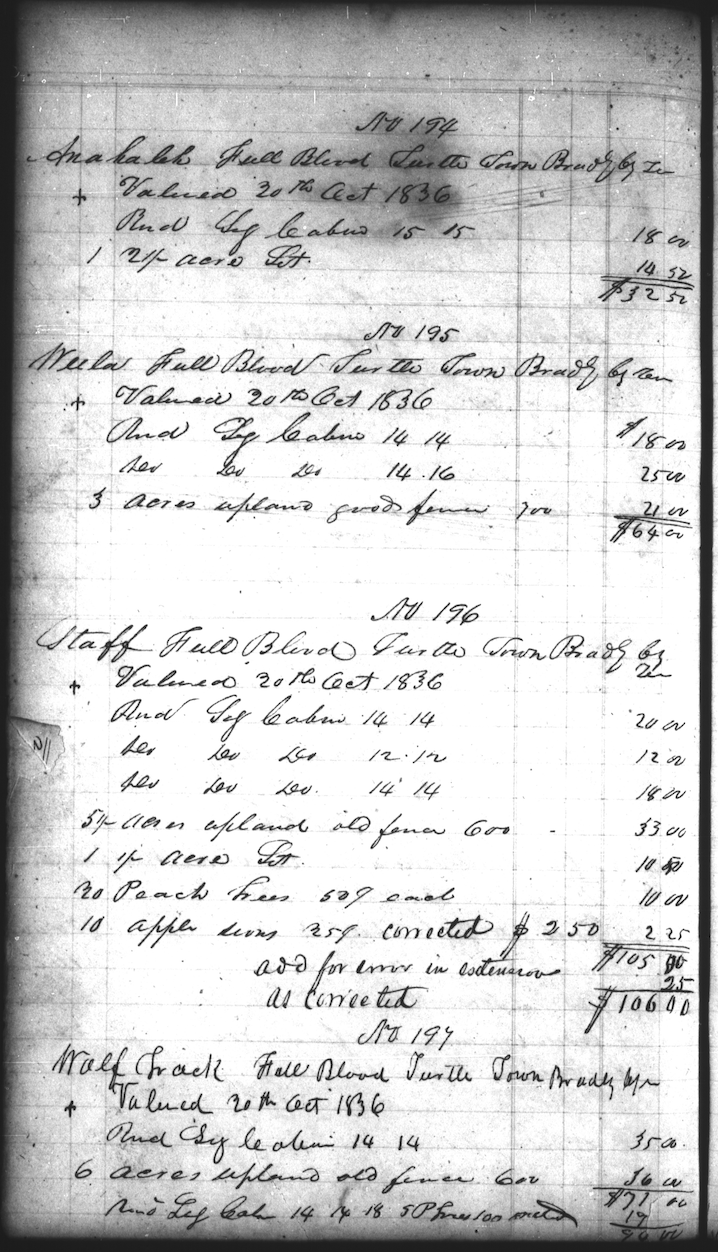 No 194
Anakaleh Full Blood Turtle Town Bradly by Ten
+ Valued 20th Oct 1836
Rnd Log Cabin 15 15 18 00
1 2/4 acre Lot 14 52
$32 52
No 195
Weela Full Blood Turtle Town Bradly by Ten
+ Valued 20th Oct 1836
Rnd Log Cabin 14 14 $18 00
Do Do Do 14.16 25 00
3 acres upland good fence 700 21 00
$64 00
No 196
Staff Full Blood Turtle Town Bradly by
Ten
+ Valued 20th Oct 1836
Rnd Log Cabin 14 14 20 00
Do Do Do 12.12 12 00
Do Do Do. 14 14 18 00
5 1/2 acres upland old fence 600 - 33.00
1 1/4 acre Lot. 10 50
20 Peach trees 50¢ each 10 00
10 apple scions 25¢ corrected $2 50 2 25
$105
add for error in extension 25
as corrected $106 00
No 197
Wolf Track Full Blood Turtle Town Bradly
+ Valued 20th Oct 1836
Rnd Log Cabin 14 14 35 00
6 acres upland old fence 600 36 00
$71 00
Rnd Log Cabn 14 14 18 5 P trees 100 19
90 00